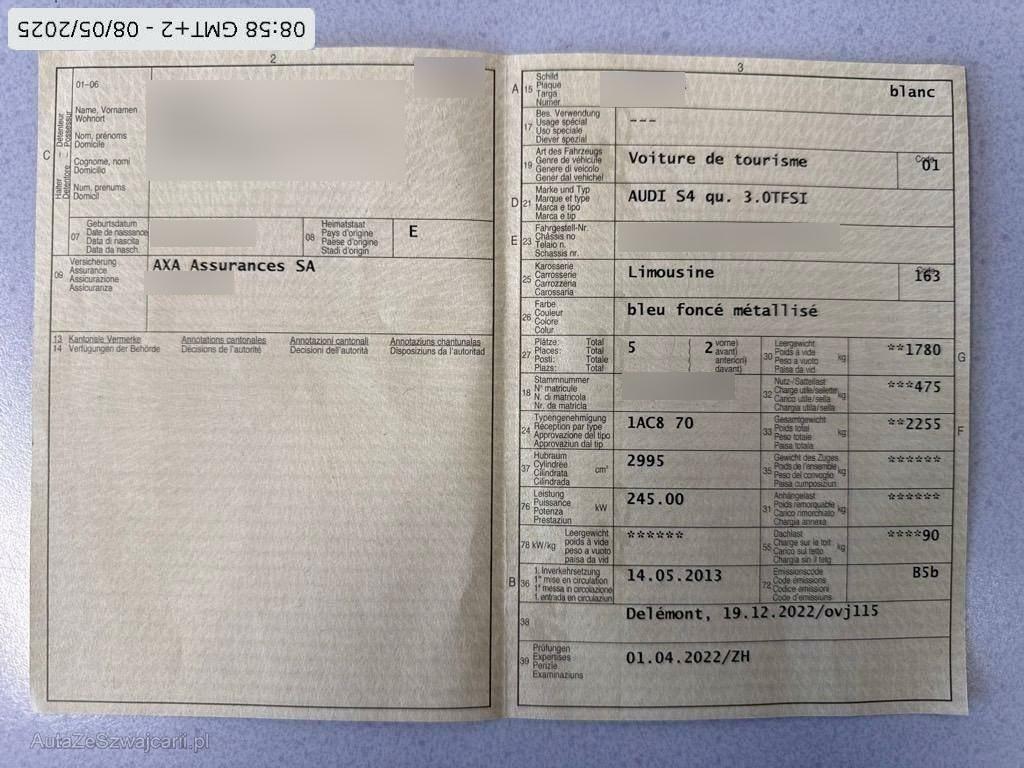 08:58 GMT+2 - 08/05/2025
2
C
Halter – Détenteur
Detentore – Possessur
01-06
Name, Vornamen
Wohnort
Nom, prénoms
Domicile
Cognome, nomi
Domicilio
Num, prenums
Domicil
07
Geburtsdatum
Date de naissance
Data di nascita
Data da nasch.
08
Heimatstaat
Pays d'origine
Paese d'origine
Stadi d'origin
E
09
Versicherung
Assurance
Assicurazione
Assicuranza
AXA Assurances SA
13 Kantonale Vermerke
14 Verfügungen der Behörde
Annotations cantonales
Décisions de l'autorité
Annotazioni cantonali
Decisioni dell'autorità
Annotaziuns chantunalas
Disposiziuns da l'autoritad
3
A 15
Schild
Plaque
Targa
Numer
blanc
17
Bes. Verwendung
Usage spécial
Uso speciale
Diever spezial
---
19
Art des Fahrzeugs
Genre de véhicule
Genere di veicolo
Gener dal vehichel
Voiture de tourisme
Code
01
D 21
Marke und Typ
Marque et type
Marca e tipo
Marca e tip
AUDI S4 qu. 3.0TFSI
E 23
Fahrgestell-Nr.
Châssis no
Telaio n.
Schassis nr.
25
Karosserie
Carrosserie
Carrozzeria
Carossaria
Limousine
Code
163
26
Farbe
Couleur
Colore
Colur
bleu foncé métallisé
27
Plätze: Total
Places: Total
Posti: Totale
Plazs: Total
5
( 2 vorne)
( avant)
( anteriori)
( davant)
30
Leergewicht
Poids à vide
Peso a vuoto
Paisa da vid
kg
**1780
G
18
Stammnummer
N° matricule
N. di matricola
Nr. da matricla
32
Nutz-/Sattellast
Charge utile/sellette
Carico utile/sella
Chargia utila/sella
kg
***475
24
Typengenehmigung
Réception par type
Approvazione del tipo
Approvaziun dal tip
1AC8 70
33
Gesamtgewicht
Poids total
Peso totale
Paisa totala
kg
**2255
F
37
Hubraum
Cylindrée
Cilindrata
Cilindrada
cm³
2995
35
Gewicht des Zuges
Poids de l'ensemble
Peso del convoglio
Paisa cumposiziun
kg
******
76
Leistung
Puissance
Potenza
Prestaziun
kW
245.00
31
Anhängelast
Poids remorquable
Carico rimorchiato
Chargia annexa
kg
******
78 kW/kg
Leergewicht
poids à vide
peso a vuoto
paisa da vid
******
55
Dachlast
Charge sur le toit
Carico sul tetto
Chargia sin il tetg
kg
****90
B 36
1. Inverkehrsetzung
1re mise en circulation
1a messa in circolazione
1. entrada en circulaziun
14.05.2013
72
Emissionscode
Code émissions
Codice emissioni
Code d'emissiuns
B5b
38
Delémont, 19.12.2022/ovj115
39
Prüfungen
Expertises
Perizie
Examinaziuns
01.04.2022/ZH
AutaZeSzwajcarii.pl